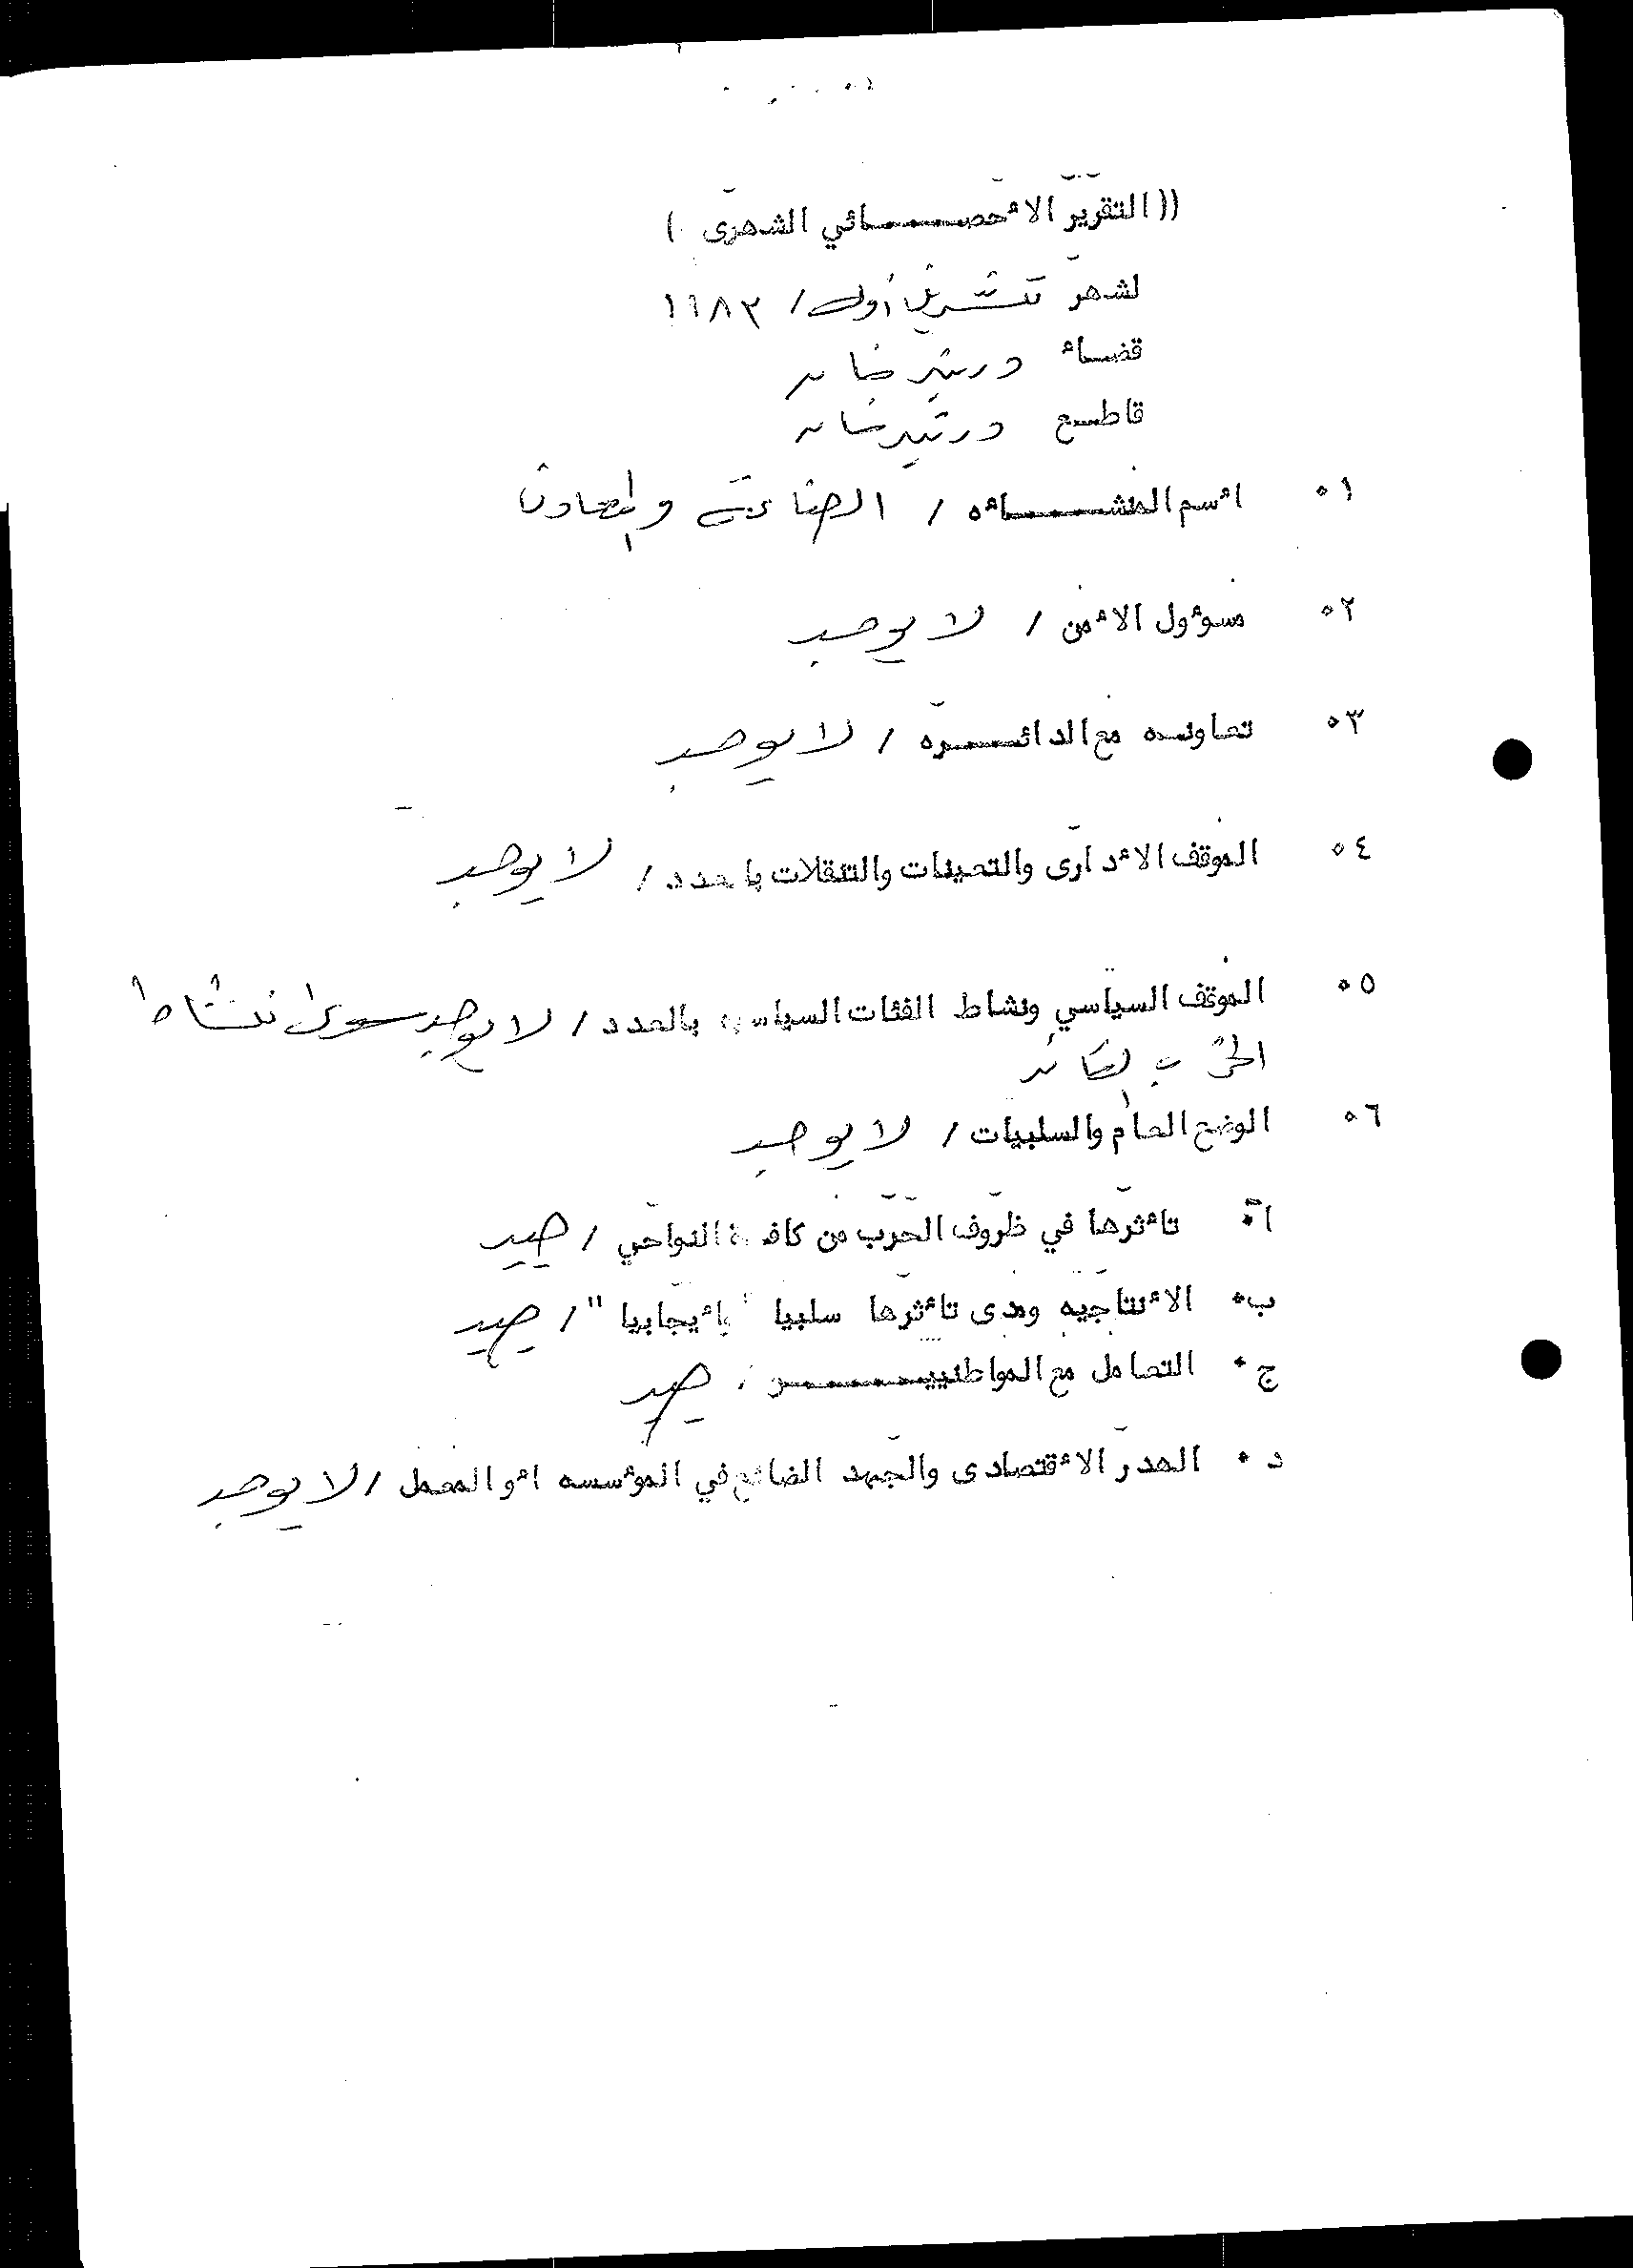 (( التقرير الأحصـــــائي الشهري )
لشهر تشرين أول / ١٩٨٣
قضاء دربندخان
قاطع دربندخان
٠١ أسم المنشــــأه / الصناعة والمعادن
٠٢ مسؤول الأمن / لا يوجد
٠٣ تعاونه مع الدائـــره / لا يوجد
٠٤ الموقف الأداري والتعينات والتنقلات بالعدد / لا يوجد
٠٥ الموقف السياسي ونشاط الفئات السياسيه بالعدد / لا يوجد سوى نشاط
الحزب القائد
٠٦ الوضع العام والسلبيات / لا يوجد
أ٠ تأثرها في ظروف الحرب من كافة النواحي / جيد
ب٠ الأنتاجيه ومدى تأثرها سلبيا " بأيجابيا " / جيد
ج٠ التعامل مع المواطنييــــــن / جيد
د٠ الهدر الأقتصادى والجهد الضائع في المؤسسه أو المعمل / لا يوجد